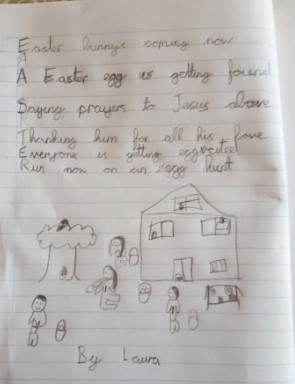 Easter bunnys coming now
A Easter egg is getting found
Saying prayers to Jesus above
Thanking him for all his love
Everyone is getting eggxcited
Run now on an eggg hunt
By Laura